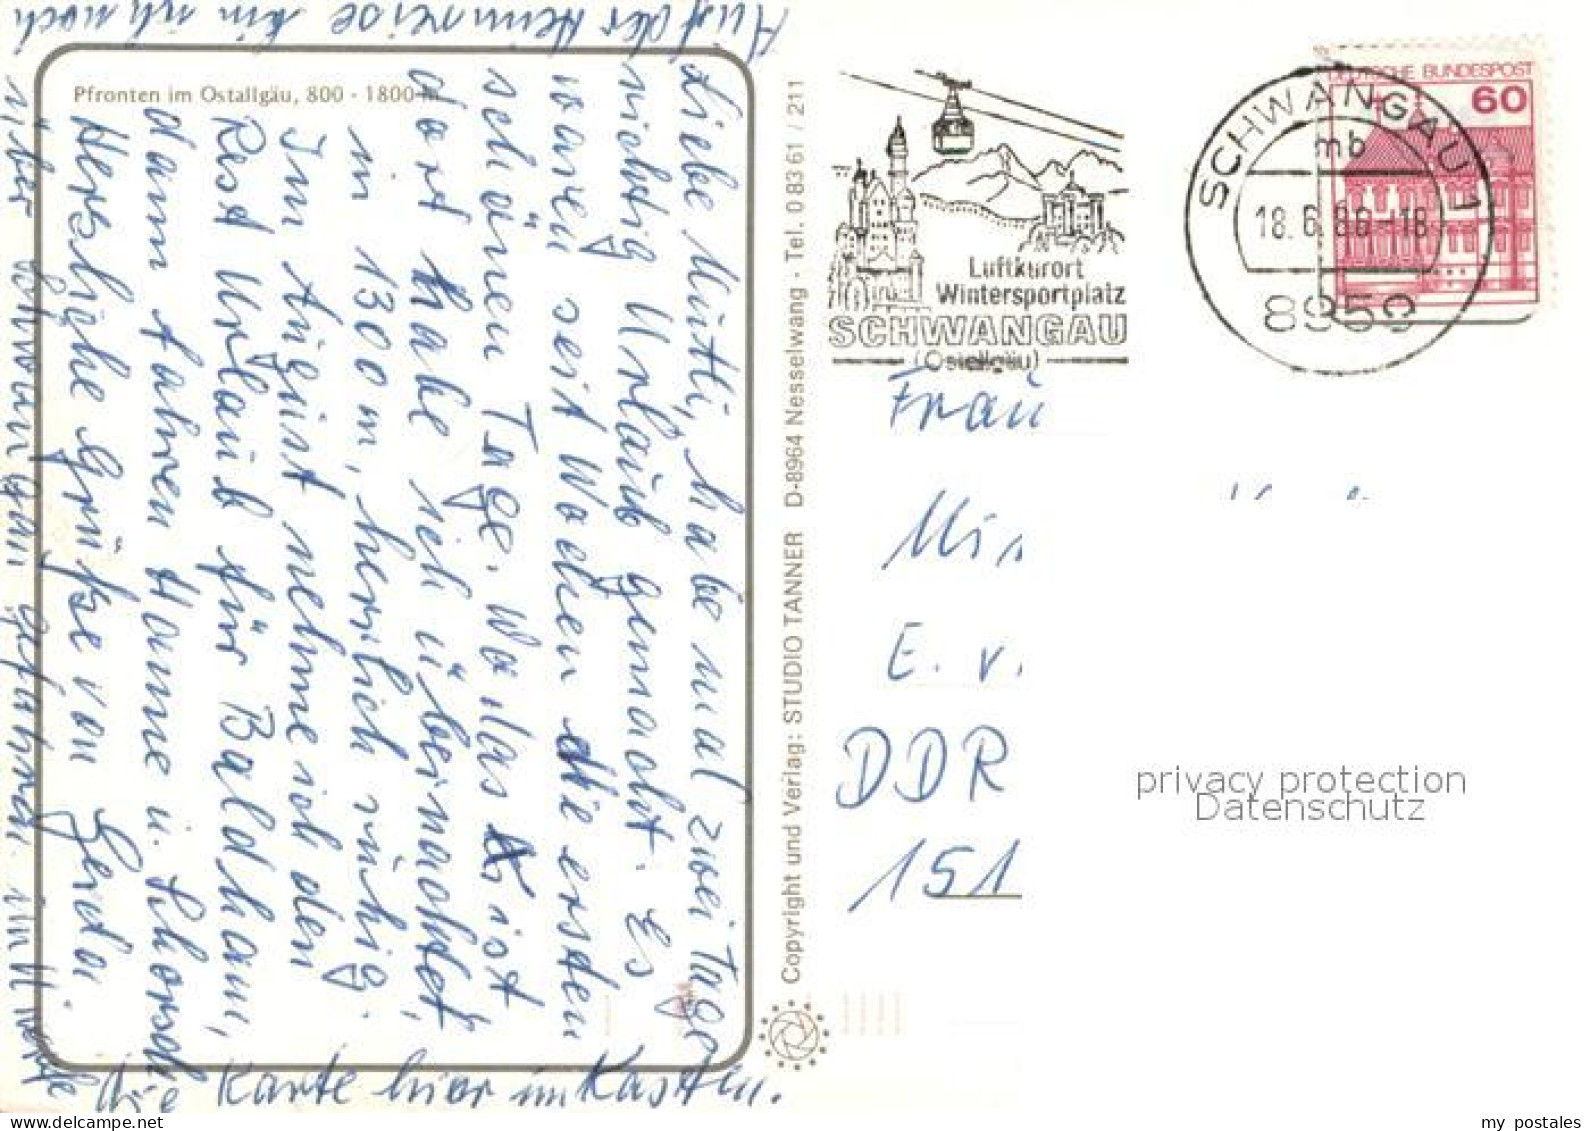 Pfronten im Ostallgäu, 800 - 1800 m
Liebe Mutti, habe mal zwei Tage
richtig Urlaub gemacht. Es
waren seit Wochen die ersten
schönen Tage. Wo das ist
dort habe ich übernachtet,
in 1300 m, herrlich ruhig.
Im August nehme ich den
Rest Urlaub für Baldham,
dann fahren Hanne u.
Herzliche Grüße von Gerda.
Auf der Heimreise bin ich noch
über Schwangau gefahren u.
Karte hier im Kasten.
Copyright und Verlag: STUDIO TANNER D-8964 Nesselwang - Tel. 0 83 61 / 211
Luftkurort
Wintersportplatz
SCHWANGAU
(Ostallgäu)
DEUTSCHE BUNDESPOST
60
SCHWANGAU 1
mb
18.6.86-18
8959
Frau
E. v.
DDR
151
privacy protection
Datenschutz
my postales